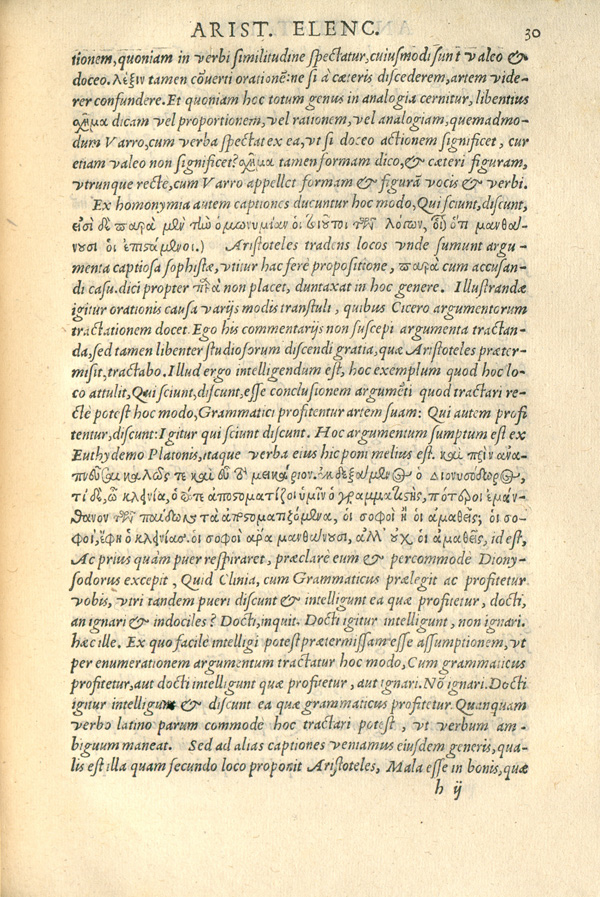 ARIST. ELENC. 30
tionem, quoniam in verbi similitudine spectatur, cuiusmodi sunt valeo &
doceo. λέξιν tamen cōuerti orationē: ne si à cæteris discederem, artem vide-
rer confundere. Et quoniam hoc totum genus in analogia cernitur, libentius
σχῆμα dicam vel proportionem, vel rationem, vel analogiam, quemadmo-
dum Varro, cum verba spectat ex ea, vt si doceo actionem significet, cur
etiam valeo non significet? σχῆμα tamen formam dico, & cæteri figuram,
vtrunque rectè, cum Varro appellet formam & figurā vocis & verbi.
Ex homonymia autem captiones ducuntur hoc modo, Qui sciunt, discunt,
εἰσὶ δὲ παρὰ μὲν τὴν ὁμωνυμίαν οἱ τοιοῦτοι τῶν λόγων, οἷον ὅτι μανθά-
νουσι οἱ ἐπιστάμενοι.) Aristoteles tradens locos vnde sumunt argu-
menta captiosa sophistæ, vtitur hac ferè propositione, παρὰ cum accusan-
di casu. dici propter non placet, duntaxat in hoc genere. Illustrandæ
igitur orationis causa varijs modis transtuli, quibus Cicero argumentorum
tractationem docet. Ego his commentarijs non suscepi argumenta tractan-
da, sed tamen libenter studiosorum discendi gratia, quæ Aristoteles præter-
misit, tractabo. Illud ergo intelligendum est, hoc exemplum quod hoc lo-
co attulit, Qui sciunt, discunt, esse conclusionem argumēti quod tractari re-
ctè potest hoc modo, Grammatici profitentur artem suam: Qui autem profi
tentur, discunt: Igitur qui sciunt discunt. Hoc argumentum sumptum est ex
Euthydemo Platonis, itaque verba eius hic poni melius est. καὶ πρὶν ἀνα-
πνεῦσαι καλῶς τε καὶ εὖ τὸ μειράκιον. ἐκδεξάμενος ὁ Διονυσόδωρος,
τί δὲ, ὦ κλεινία, ὁπότε ἀποστοματίζοι ὑμῖν ὁ γραμματικὴς, πότεροι ἐμάν-
θανον τῶν παίδων τὰ ἀποστοματιζόμενα, οἱ σοφοὶ ἢ οἱ ἀμαθεῖς; οἱ σο-
φοί, ἔφη ὁ κλεινίας. οἱ σοφοὶ ἄρα μανθάνουσι, ἀλλ' οὐχ οἱ ἀμαθεῖς, id est,
Ac prius quàm puer respiraret, præclarè eum & percommodè Diony-
sodorus excepit, Quid Clinia, cum Grammaticus prælegit ac profitetur
vobis, vtri tandem pueri discunt & intelligunt ea quæ profitetur, docti,
an ignari & indociles? Docti, inquit. Docti igitur intelligunt, non ignari.
hæc ille. Ex quo facile intelligi potest prætermissam esse assumptionem, vt
per enumerationem argumentum tractatur hoc modo, Cum grammaticus
profitetur, aut docti intelligunt quæ profitetur, aut ignari. Nō ignari. Docti
igitur intelligunt & discunt ea quæ grammaticus profitetur. Quanquam
verbo latino parum commodè hoc tractari potest, vt verbum am-
biguum maneat. Sed ad alias captiones veniamus eiusdem generis, qua-
lis est illa quam secundo loco proponit Aristoteles, Mala esse in bonis, quæ
h ij